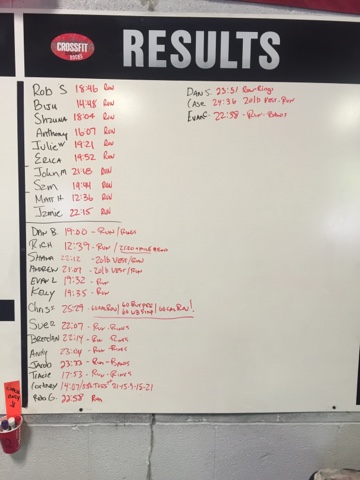 CROSSFIT
RESULTS
Rob S 18:46 Row
Biju 14:48 Row
Shauna 18:04 Row
Anthony 16:07 Row
Julie W 19:21 Row
Erica 19:52 Row
John M 21:18 Run
Sam 19:44 Run
Matt H 12:36 Row
Jamie 22:15 Row
Dan B 19:00 - Run/Rings
Rich 12:39 - Run /
Shana 22:12 - 20lb Vest/Run
Andrew 21:07 - 20lb Vest/Run
Evan L 19:32 - Run
Kelly 19:35 - Run
Chris F 25:29
Sue R 22:07 - Run - Rings
Brennan 22:14 Run - Rings
Andy 23:04 Run - Rings
Jacob 23:22 - Run - Bands
Tracie 17:53 - Run - Rings
Courtney 14:07 21-15-9-15-21
Rob G. 22:58 Run
Dan S. 23:31 Row-Rings
Case 24:36 20lb Vest-Run
Evan G 22:58 - Run - Bands